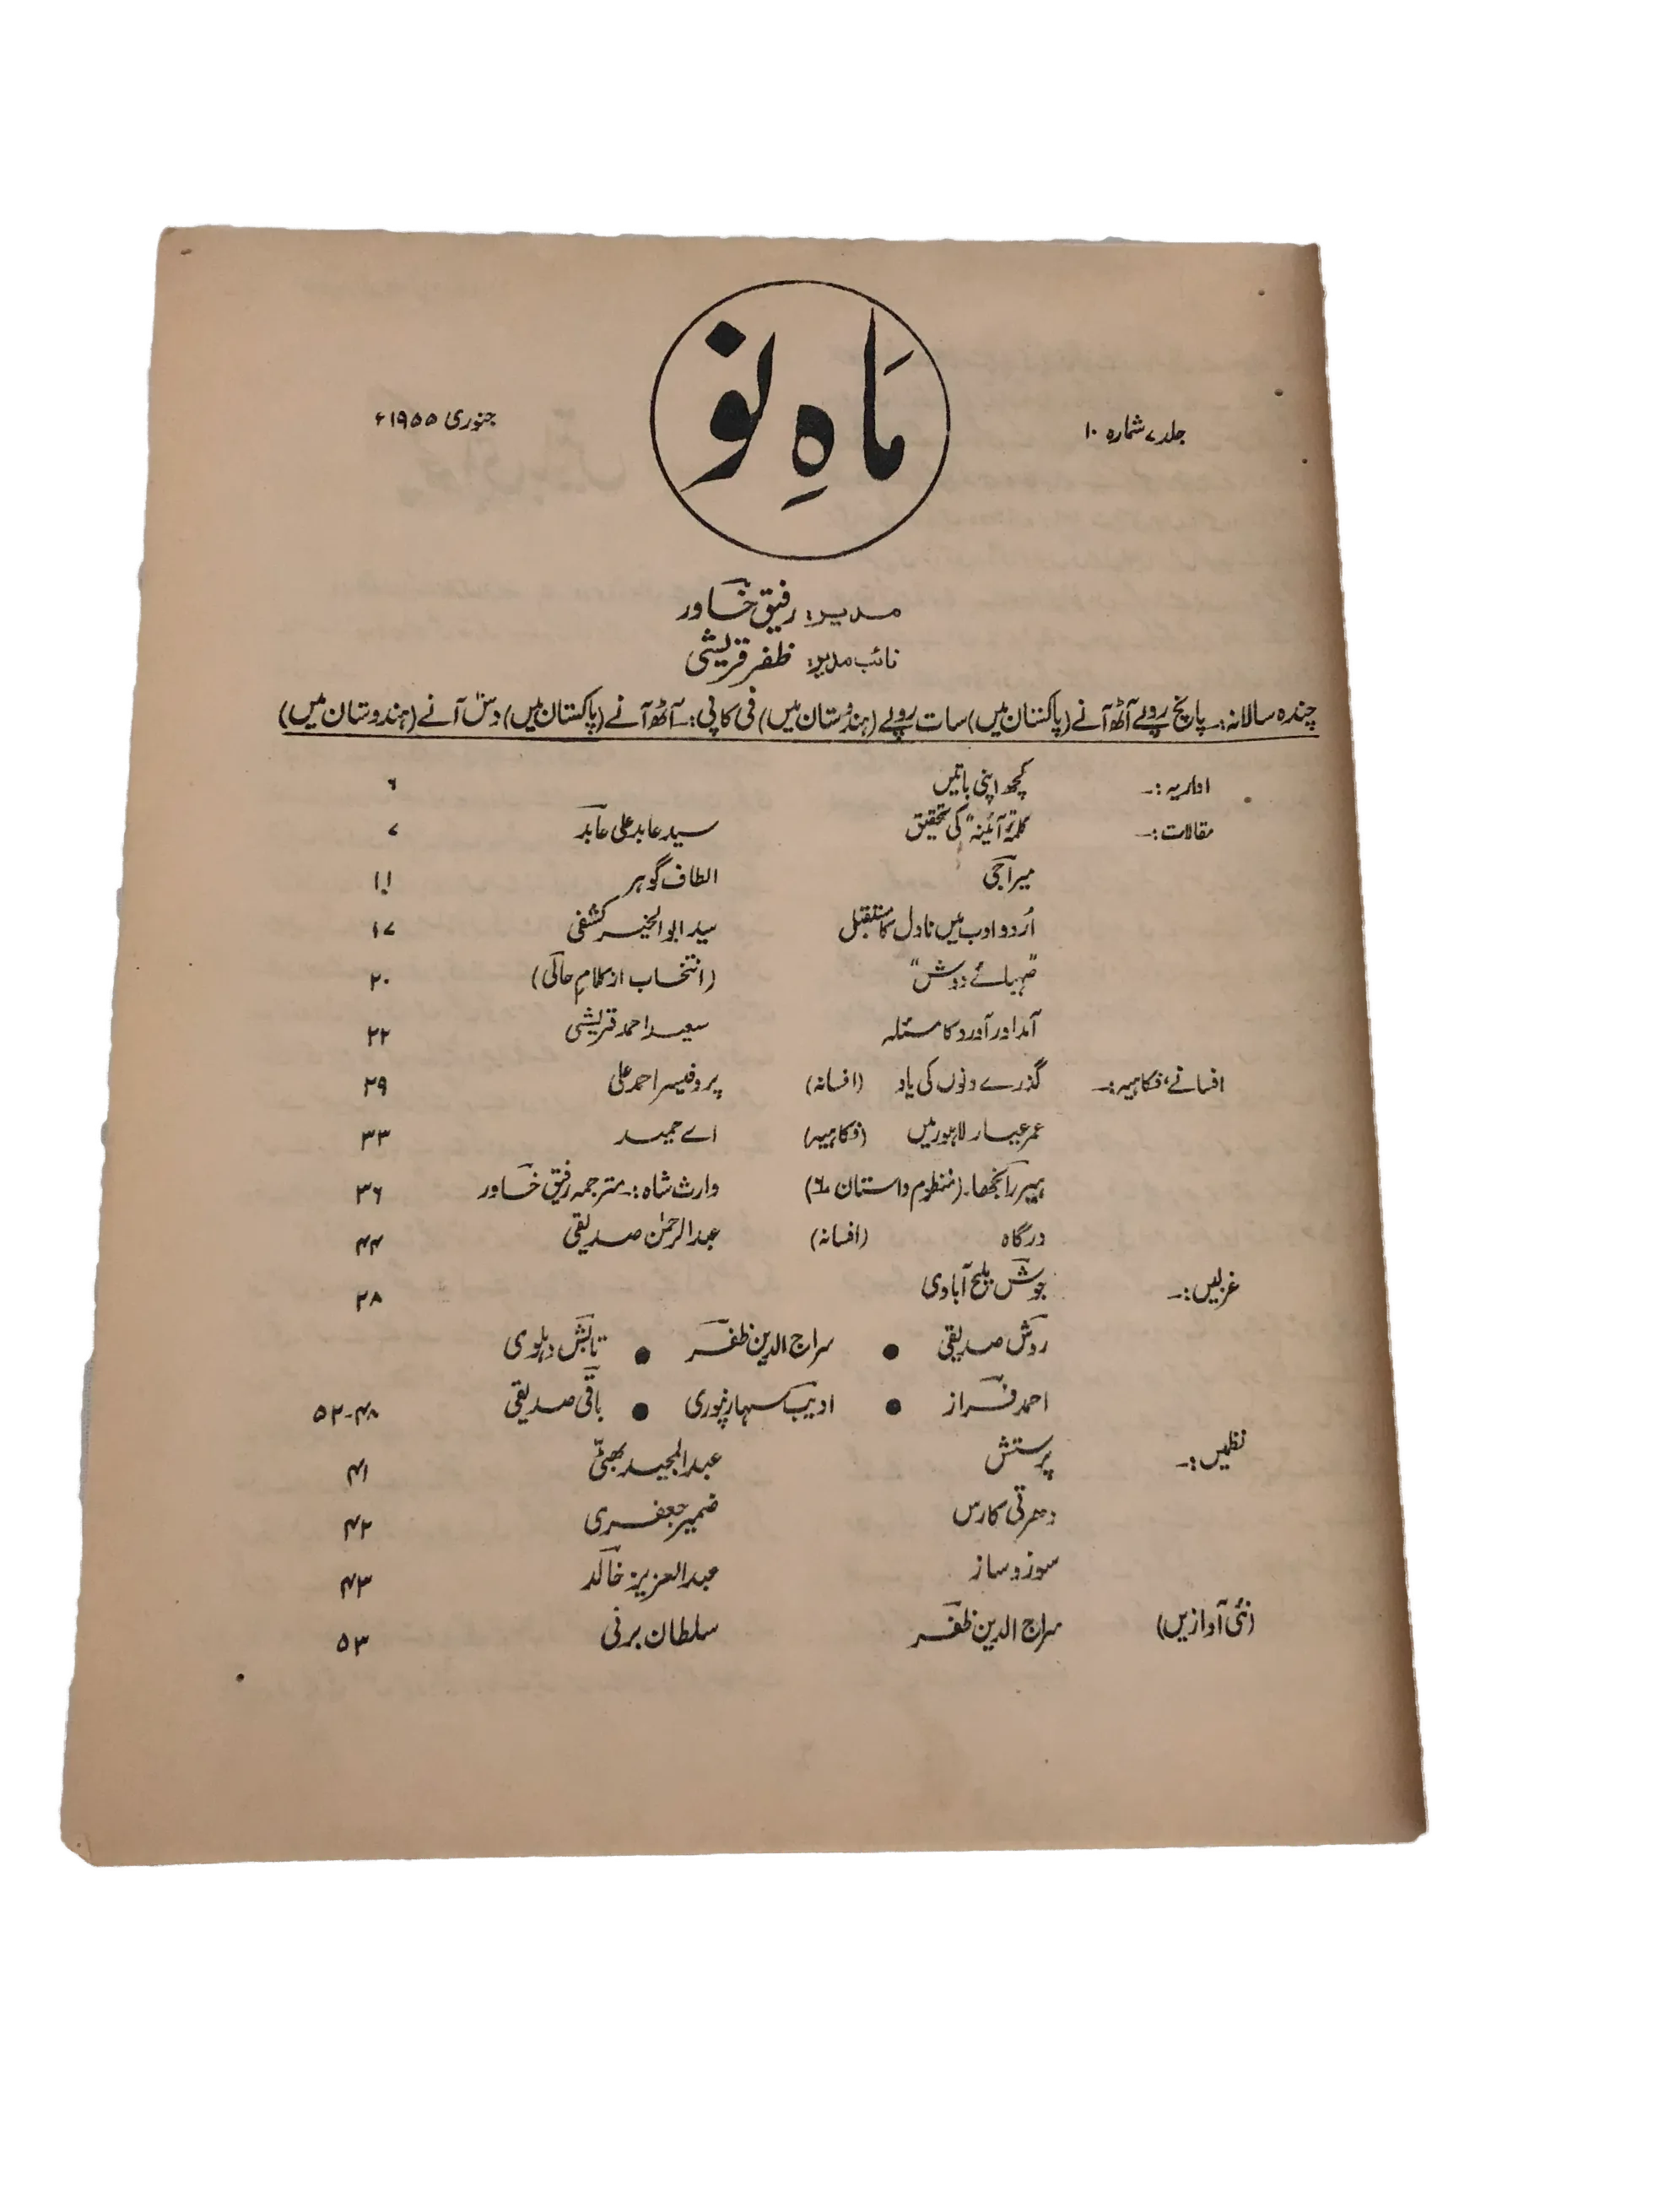 جلد ۷، شمارہ ۱۰
مَاہِ نَو
جنوری ۱۹۵۵ء
مدیر: رفیق خاور
نائب مدیر: ظفر قریشی
چندہ سالانہ:۔ پانچ روپے آٹھ آنے (پاکستان میں) سات روپے (ہندوستان میں) فی کاپی:۔ آٹھ آنے (پاکستان میں) دس آنے (ہندوستان میں)
اداریہ:۔ کچھ اپنی باتیں ۶
مقالات:۔ کلمۂ "آئینہ" کی تحقیق سید عابد علی عابد ۷
میراجی الطاف گوہر ۱۱
اُردو ادب میں ناول کا مستقبل سید ابوالخیر کشفی ۱۷
"صہبائے دوش" (انتخاب از کلامِ حالی) ۲۰
آمد اور آورد کا مسئلہ سعید احمد قریشی ۲۲
افسانے، فکاہیہ:۔ گذرے دنوں کی یاد (افسانہ) پروفیسر احمد علی ۲۹
عمر عیار لاہور میں (فکاہیہ) اے حمید ۳۳
ہیر رانجھا۔ (منظوم داستان ۶) وارث شاہ:۔ مترجمہ رفیق خاور ۳۶
درگاہ (افسانہ) عبدالرحمٰن صدیقی ۴۴
غزلیں:۔ جوش ملیح آبادی ۲۸
روش صدیقی ● سراج الدین ظفر ● تابش دہلوی
احمد فراز ● ادیب سہارنپوری ● باقی صدیقی ۴۸-۵۲
نظمیں:۔ پرستش عبدالمجید بھٹی ۴۱
دھرتی کا رس ضمیر جعفری ۴۲
سوز و ساز عبدالعزیز خالد ۴۳
(نئی آوازیں) سراج الدین ظفر سلطان برنی ۵۳